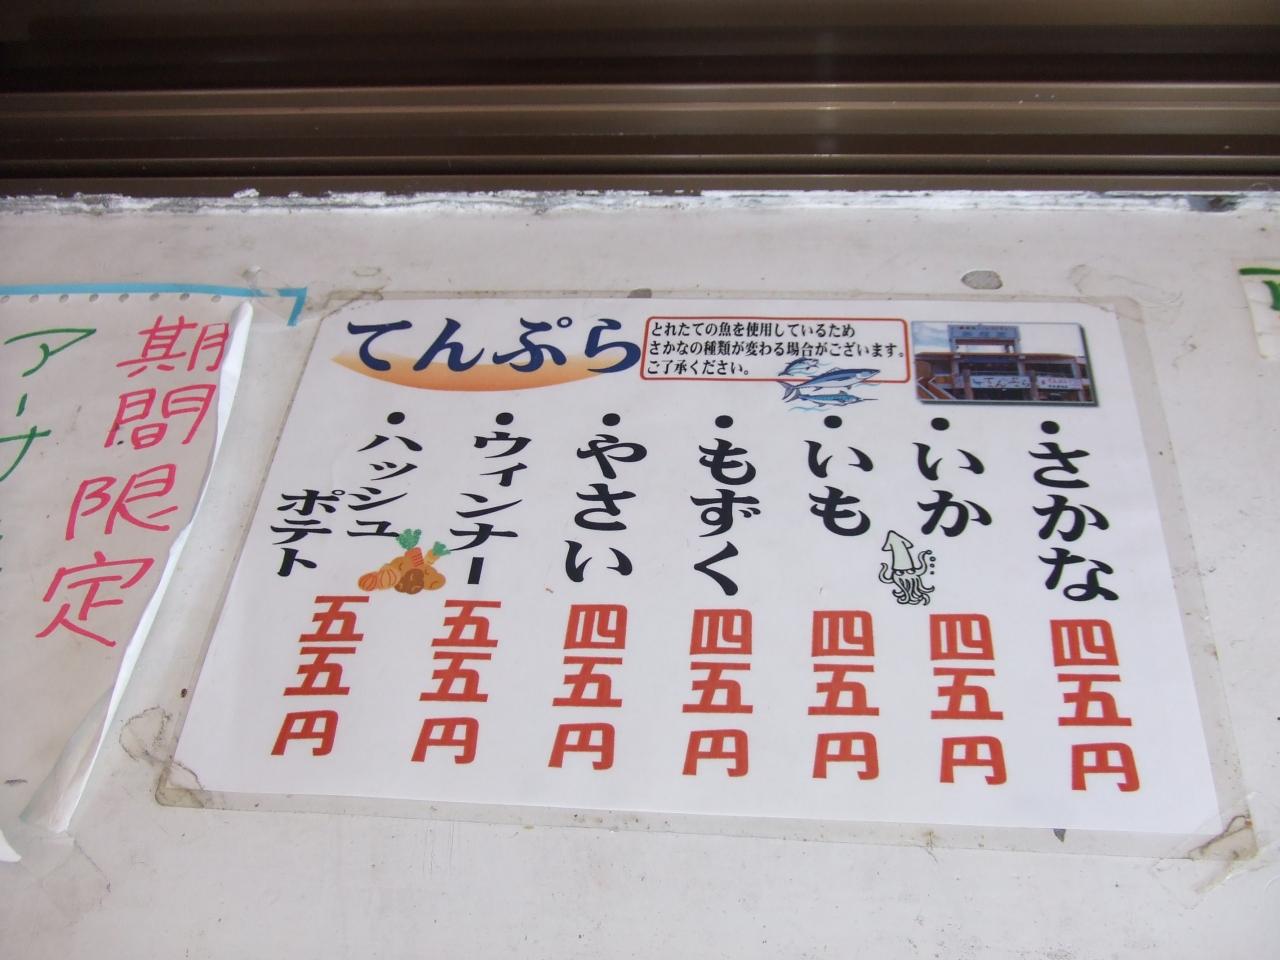 てんぷら
とれたての魚を使用しているため
さかなの種類が変わる場合がございます。
ご了承ください。
・さかな 四五円
・いか 四五円
・いも 四五円
・もずく 四五円
・やさい 四五円
・ウィンナー 五五円
・ハッシュ
ポテト 五五円
期間限定
アーサ
てんぷら